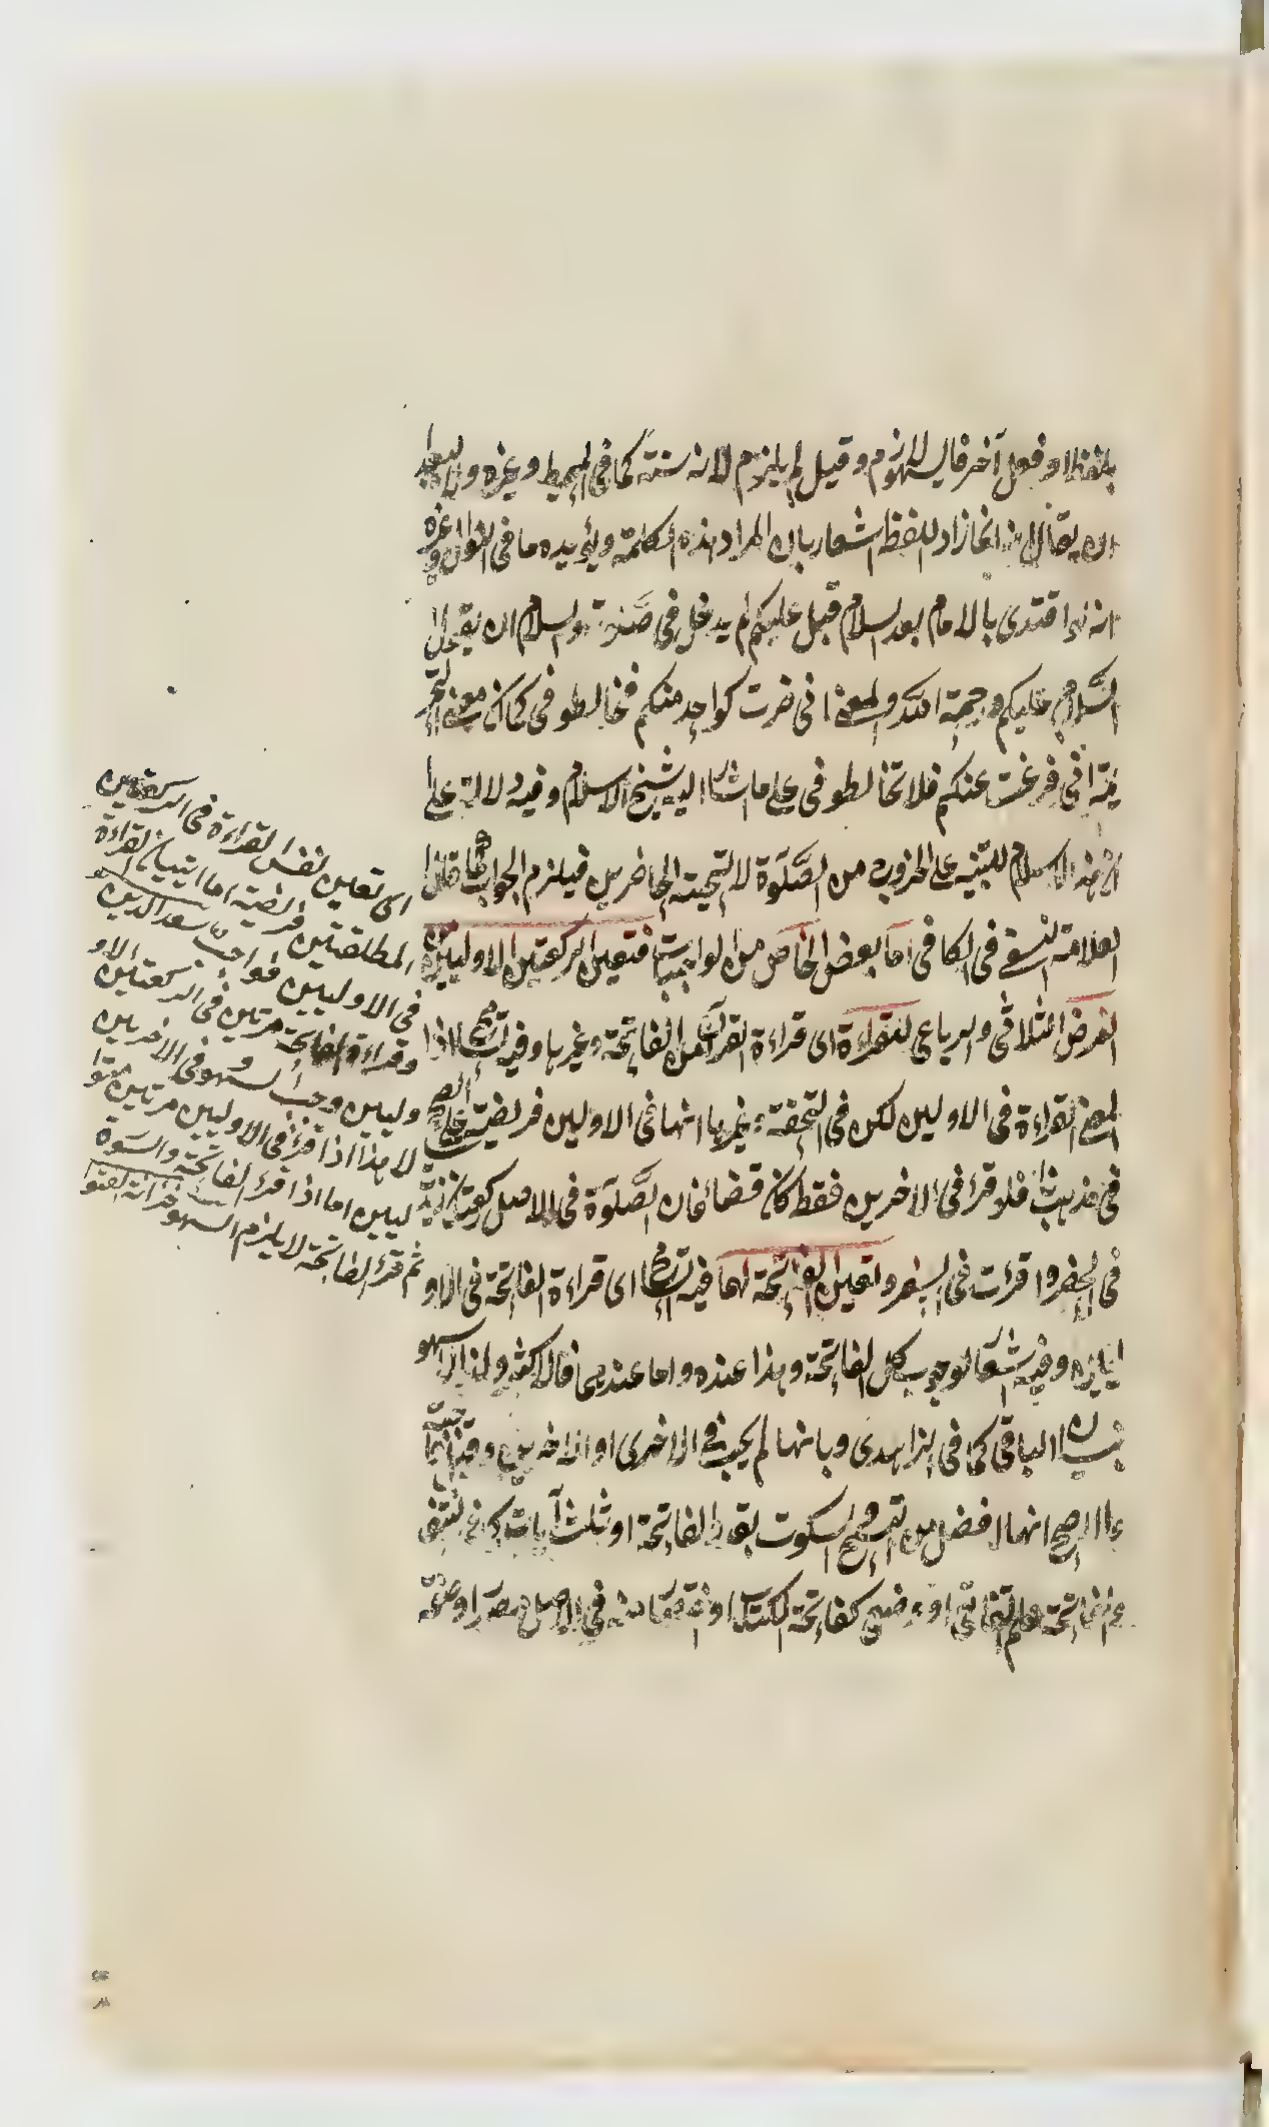 بلفظ او فعل آخر فالسهو لازم وقيل لم يلزم لانه سنة كما فى المحيط وغيره ولا يبعد
ان يقال انه انما زاد للفظ اشعار بان المراد هذه الكلمة ويؤيده ما فى النوازل وغيره
انه لو اقتدى بالامام بعد السلام قبل عليكم لم يدخل فى صلوته والسلام ان يقول
السلام عليكم ورحمة الله والمعنى انى صرت كواحد منكم فخالطونى كما كان معنى التحر
يمة انى فرغت عنكم فلا تخالطونى على ما اشار اليه شيخ الاسلام وفيه دلالة على
ان هذا السلام للتنبيه على الخروج من الصلوة لا لتحية الحاضرين فيلزم الجواب كما قال
العلامة النسفى فى الكافى اما بعض الخاص من الواجبات فتعين الركعتين الاوليين
الفرض الثلاثى والرباعى للقراءة اى قراءة القرآن من الفاتحة وغيرها وفيه تسامح اذا
المعنى القراءة فى الاوليين لكن فى التحفة وغيرها انها فى الاوليين فريضة على الصحيح
فى مذهبنا فلو قرأ فى الاخريين فقط كان قضاء فان الصلوة فى الاصل ركعتان زيد
فى الحضر واقرت فى السفر وتعين الفاتحة لهما فيه تسامح اى قراءة الفاتحة فى الاو
ليين وفيه اشعار لوجوب كل الفاتحة وهذا عنده واما عندهما فالاكثر ولذا لا سهو
بنسيان الباقى كما فى الزاهدى وبانها لم يجب فى الاخرى او الاخريين
الاصح انها افضل من التسبيح والسكوت بقدر الفاتحة او ثلث آيات
الفاتحة كفاتحة الكتاب فى الاصل مصدر او صفة
اى تعين نفس القراءة فى الركعتين
المطلقتين فريضة اما اتيان القراءة
فى الاوليين فواجب سعد الدين
وقراءة الفاتحة مرتين فى الركعتين الاو
وليين وجب سهو وفى الاخريين
لا هذا اذا قرأ فى الاوليين مرتين متوا
ليين اما اذا قرأ الفاتحة والسورة
ثم قرأ الفاتحة لا يلزم السهو خزانة الفتوا